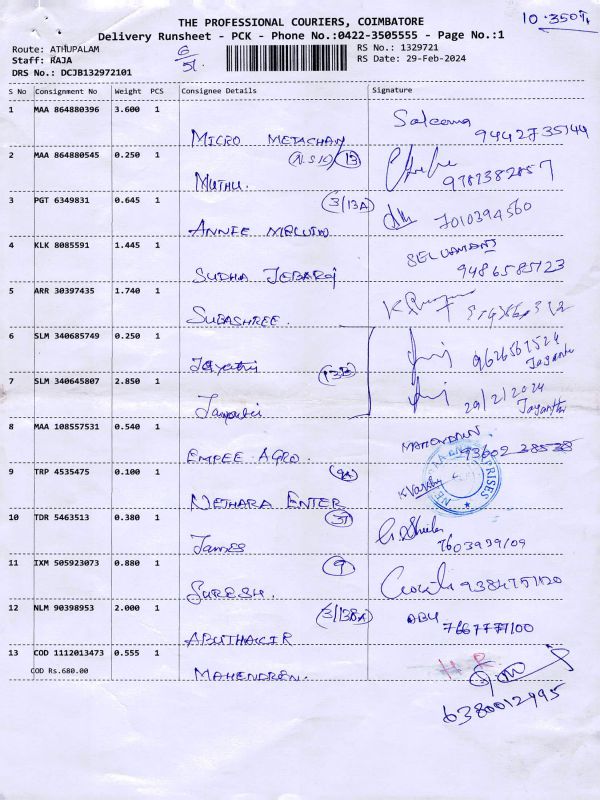 10.350
THE PROFESSIONAL COURIERS, COIMBATORE
Delivery Runsheet - PCK - Phone No.:0422-3505555 - Page No.:1
Route: ATHUPALAM
RS No.: 1329721
Staff: RAJA
RS Date: 29-Feb-2024
DRS No.: DCJB132972101
S No Consignment No Weight PCS Consignee Details Signature
1 MAA 864880396 3.600 1 MICRO Saleema 9442735144
2 MAA 864880545 0.250 1 MUTHU. 13 9787382857
3 PGT 6349831 0.645 1 ANNEE 3/13A 7010394560
4 KLK 8085591 1.445 1 SUDHA JEBARAJ SELVAMANI 9486585723
5 ARR 30397435 1.740 1 SUBASHREE.
6 SLM 340685749 0.250 1 Jayanthi 13B 9626567524 Jayanthi
7 SLM 340645807 2.850 1 Jayanthi 29/2/2024 Jayanthi
8 MAA 108557531 0.540 1 EMPEE AGRO. 93602 38535
9 TRP 4535475 0.100 1 NETHARA ENTER 9A
10 TDR 5463513 0.380 1 James 31
11 IXM 505923073 0.880 1 SURESH. 9
12 NLM 90398953 2.000 1 ABUTHAKIR 3/138A ABU 7667777100
13 COD 1112013473 0.555 1 MAHENDREN. H.R.
COD Rs.680.00
6380012495